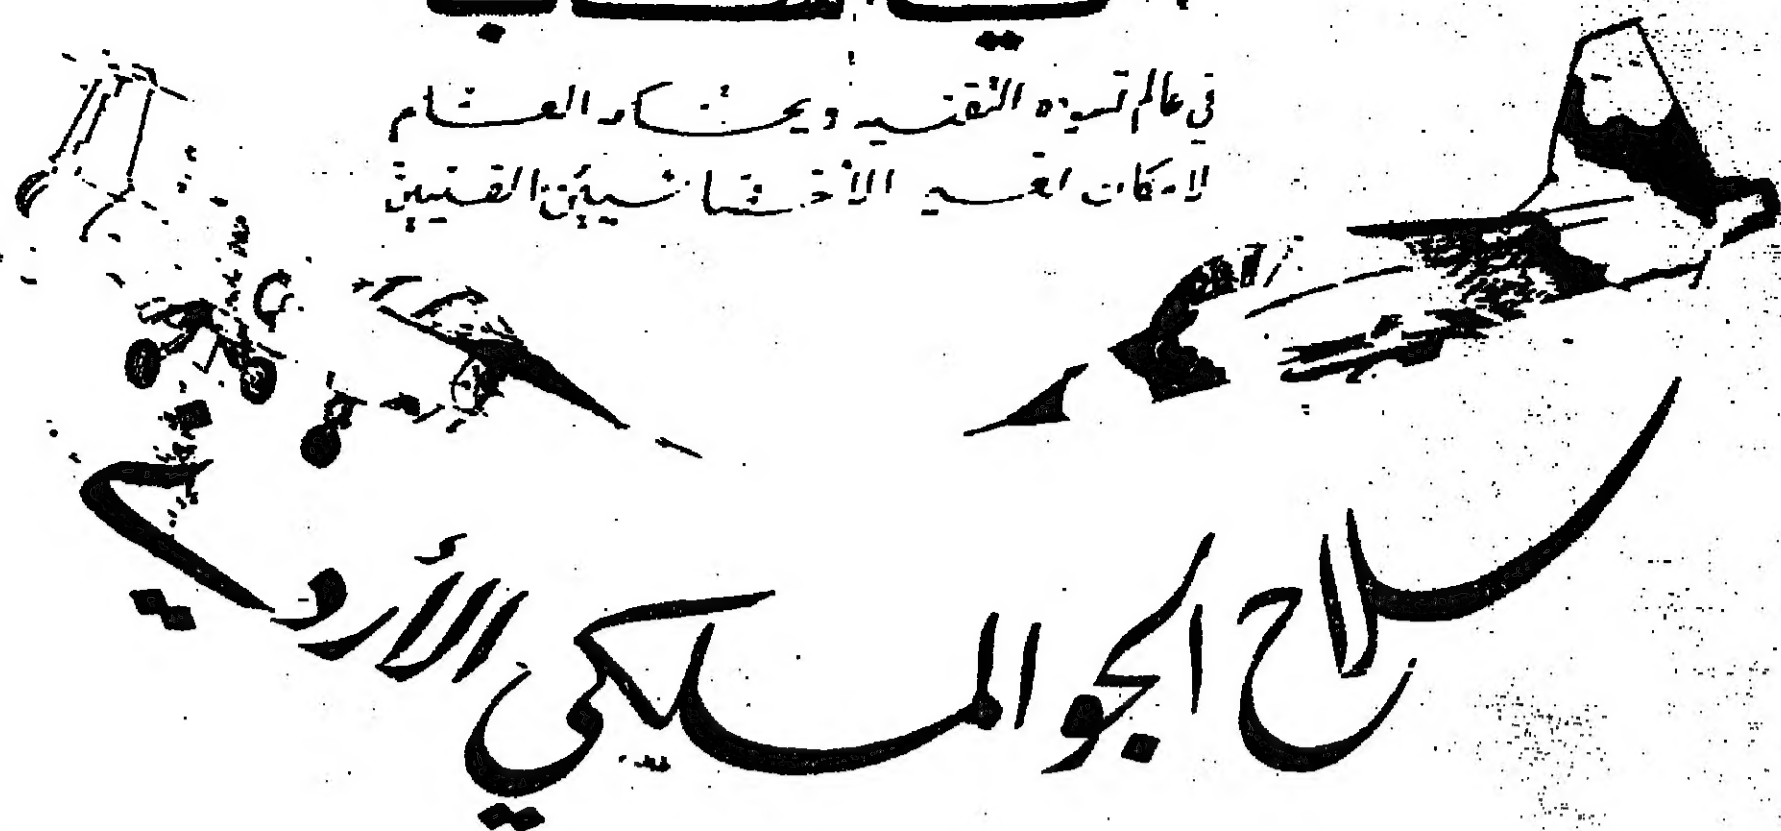 في عالم تسوده التقنية ويحتاج العالم
لا مكان لغير الأخصائيين الفنيين
سلاح الجو الملكي الأردني